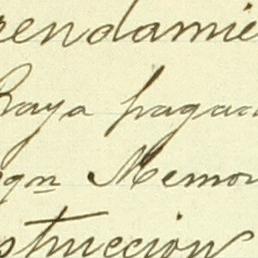 rendamie
Raya pagad
egn Memor
strucción